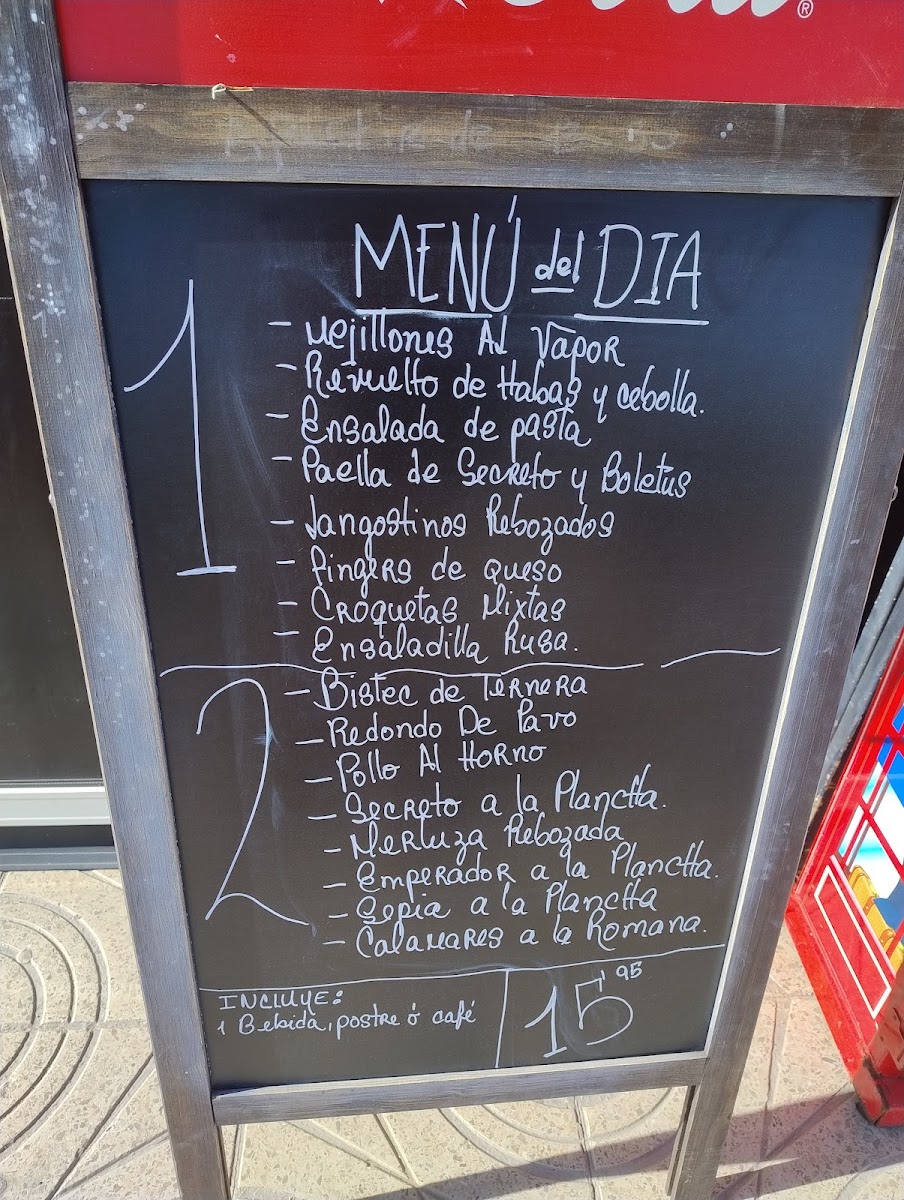 MENÚ del DIA
1
- Mejillones Al Vapor
- Revuelto de Habas y cebolla.
- Ensalada de pasta
- Paella de Secreto y Boletus
- Langostinos Rebozados
- Fingers de queso
- Croquetas Mixtas
- Ensaladilla Rusa.
2
- Bistec de Ternera
- Redondo De Pavo
- Pollo Al Horno
- Secreto a la Plancha.
- Merluza Rebozada
- Emperador a la Plancha.
- Sepia a la Plancha
- Calamares a la Romana.
INCLUYE:
1 Bebida, postre ó café
15'95